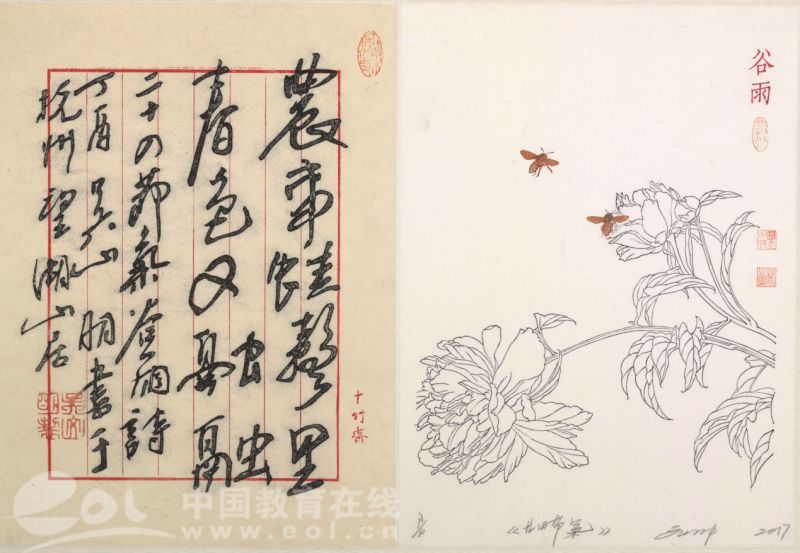 農事蛙聲里
春色又融融
二十四節氣谷雨詩
丁酉吳山明書于
杭州望湖山居
十竹齋
谷雨
2017
eol
中国教育在线
www.eol.cn